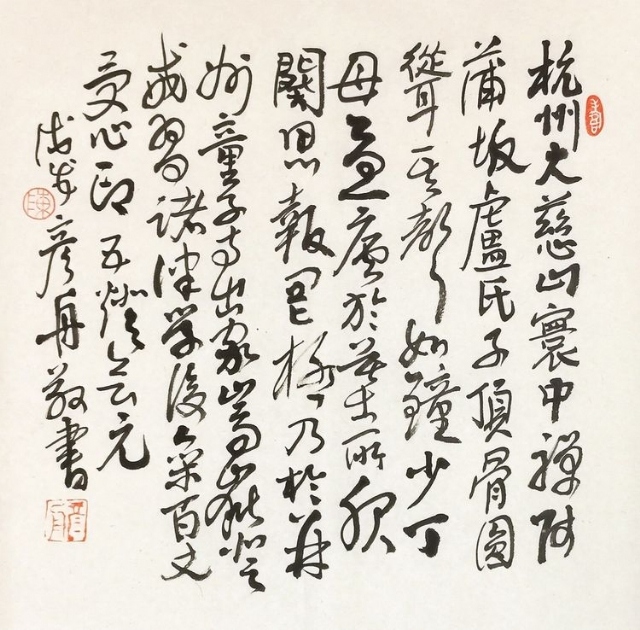 杭州大慈山寰中禪師
蒲坂盧氏子頂骨圓
聳其聲如鐘少丁
母憂廬於墓所服
闋思報罔極乃於并
州童子寺出家嵩嶽登
戒習諸律學後參百丈
受心印五燈會元
戊戌彥舟敬書